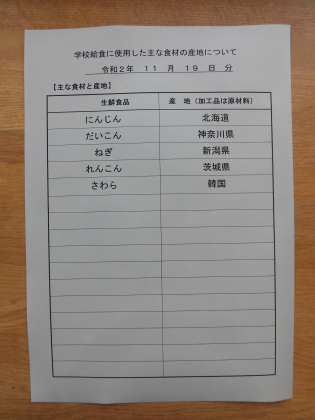 学校給食に使用した主な食材の産地について
令和2年 11 月 19 日 分
【主な食材と産地】
生鮮食品 産 地（加工品は原材料）
にんじん 北海道
だいこん 神奈川県
ねぎ 新潟県
れんこん 茨城県
さわら 韓国